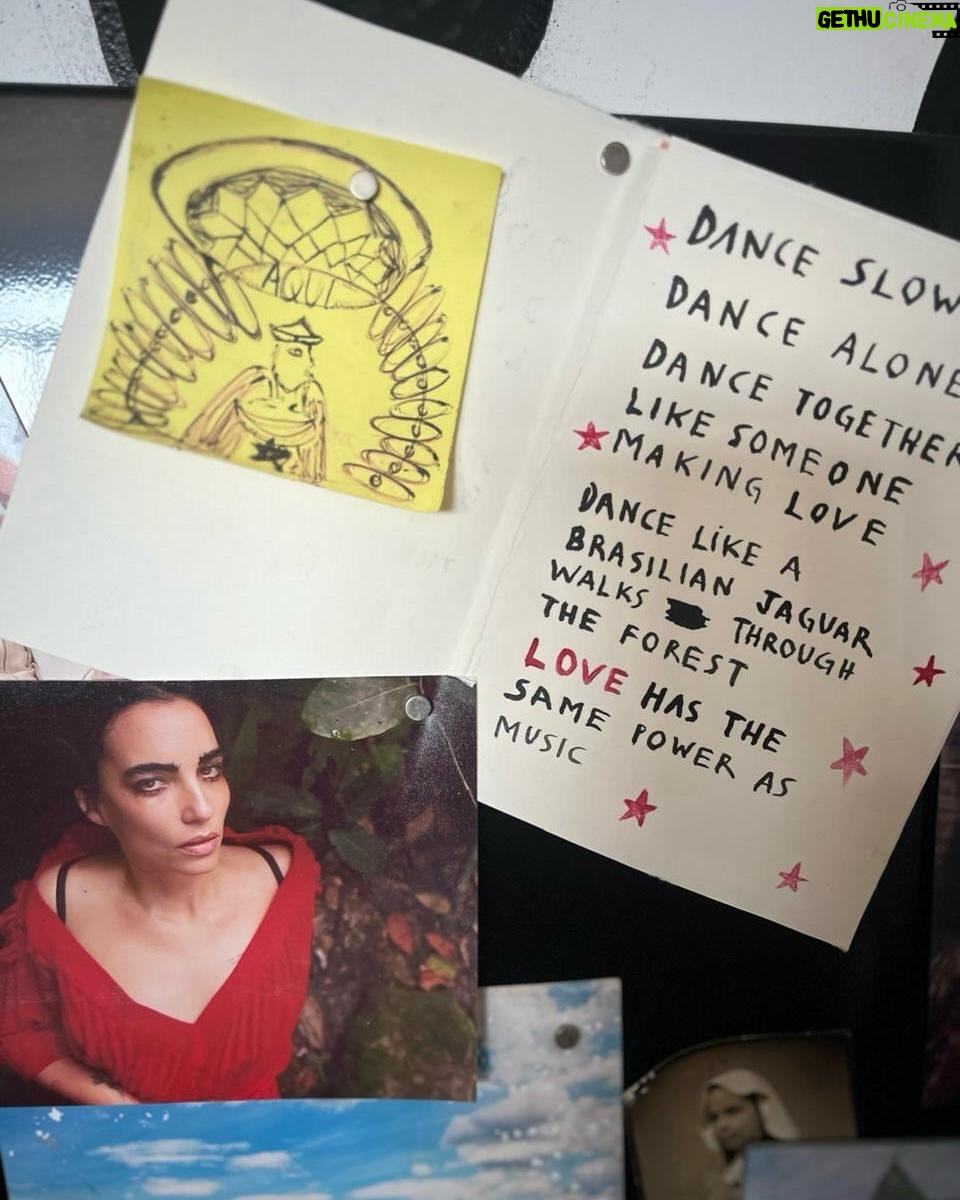 GETHUCINEMA
AQUI
DANCE SLOW
DANCE ALONE
DANCE TOGETHER
LIKE SOMEONE
MAKING LOVE
DANCE LIKE A
BRASILIAN JAGUAR
WALKS THROUGH
THE FOREST
LOVE HAS THE
SAME POWER AS
MUSIC